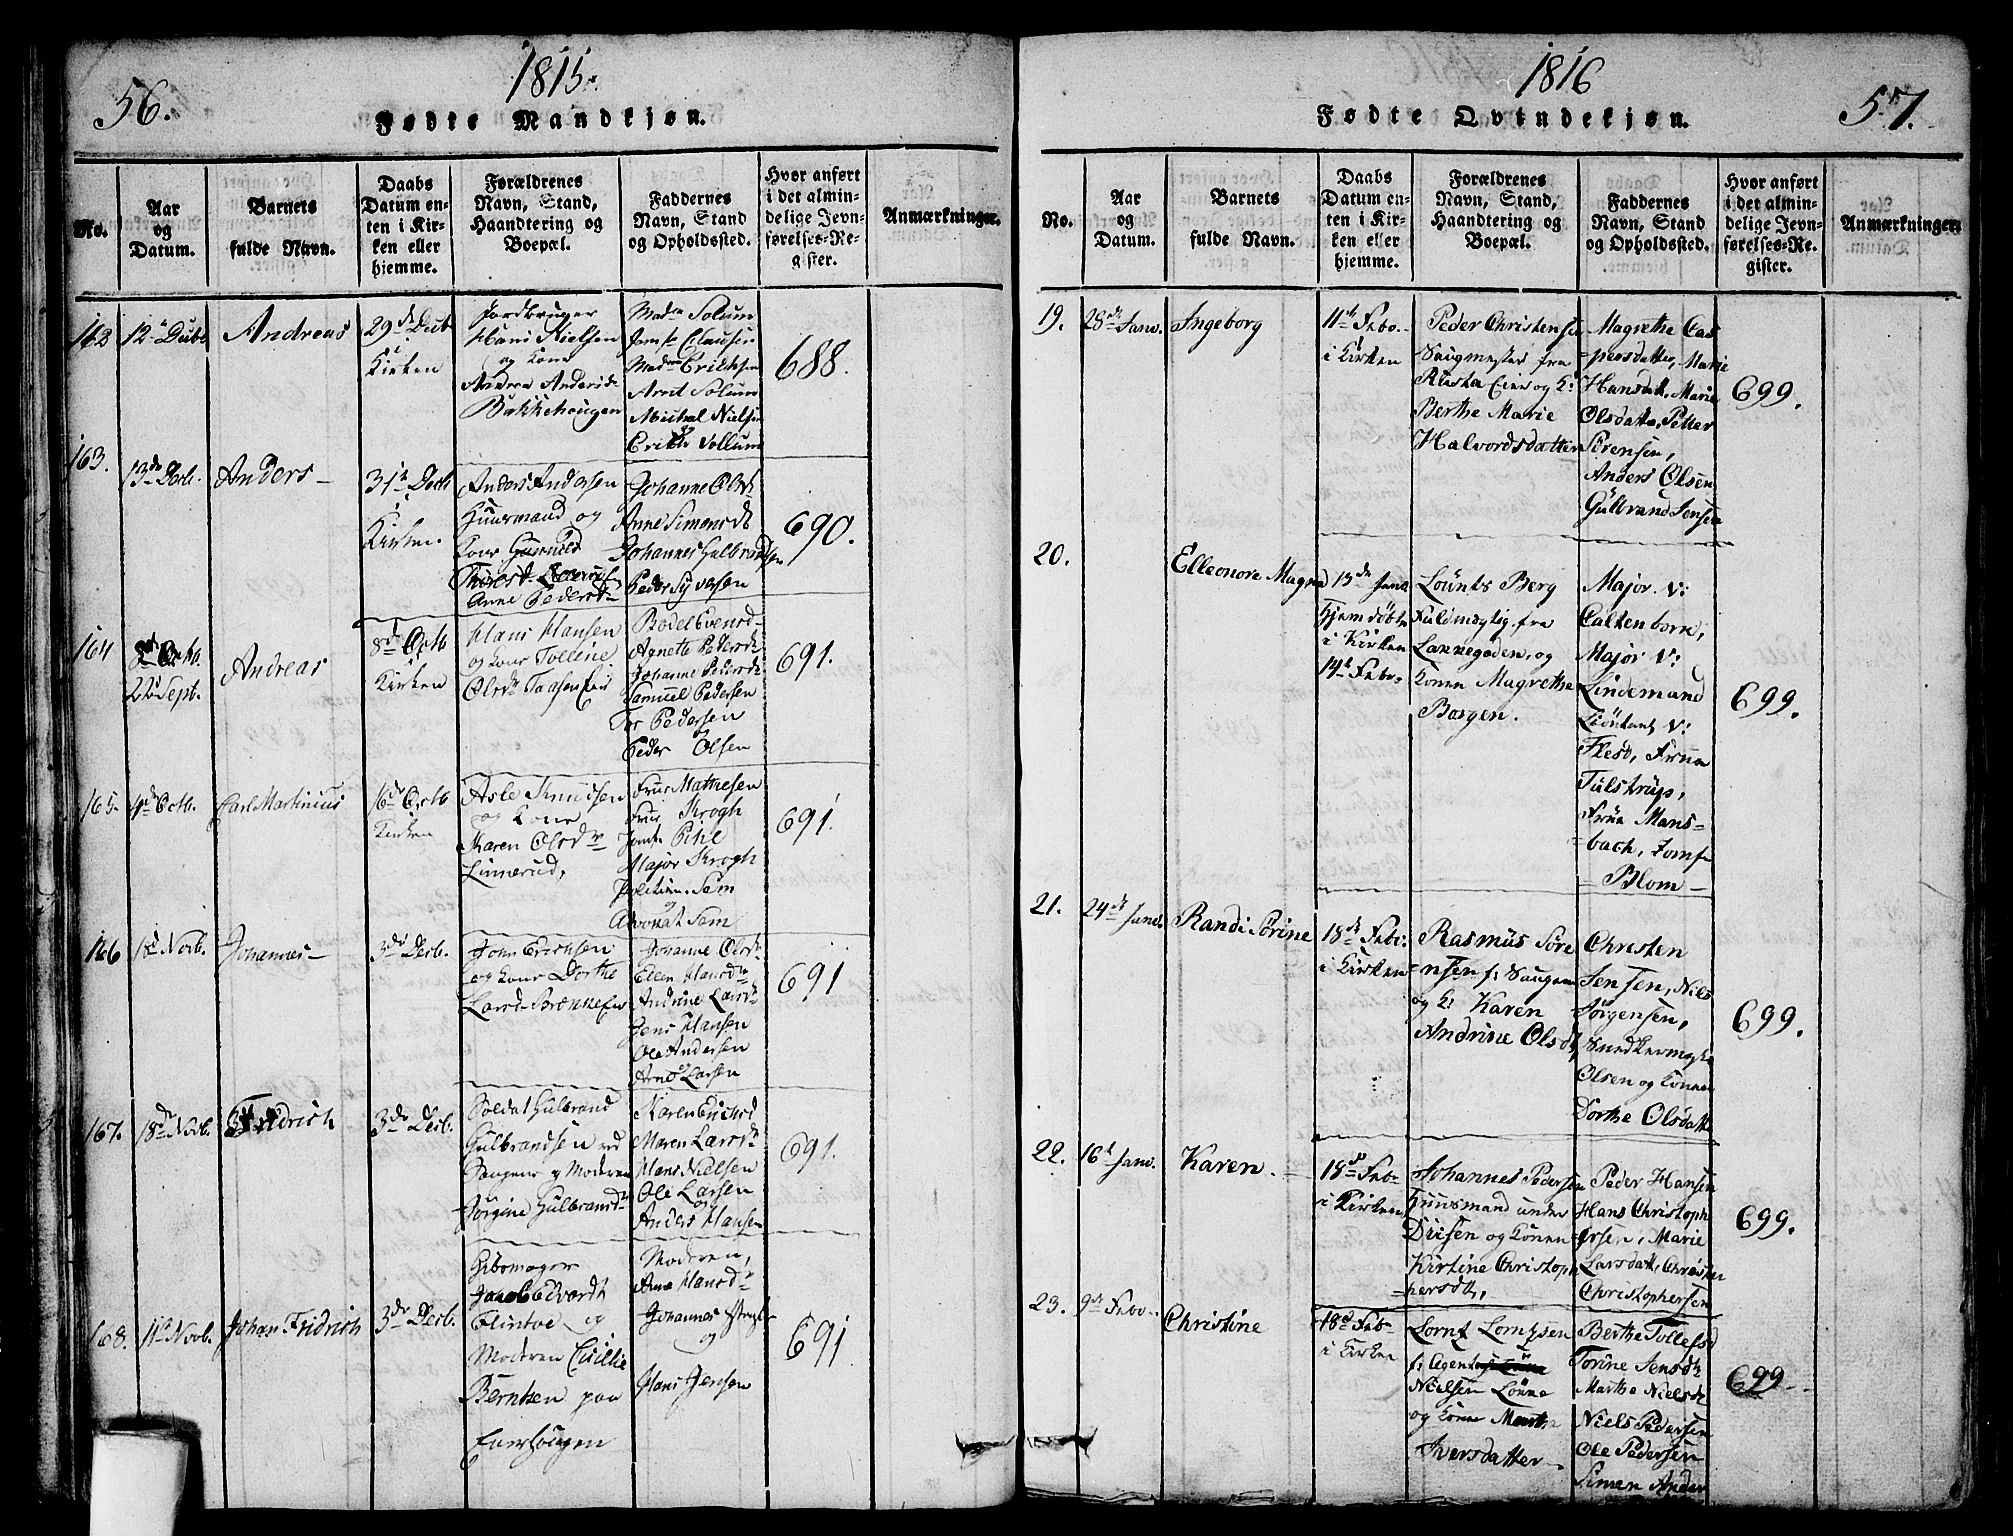 56.
1815.
Fødte Mandkjøn.
No.
Aar
og
Datum.
Barnets
fulde Navn.
Daabs
Datum en-
ten i Kir-
ken eller
hjemme.
Forældrenes
Navn, Stand,
Haandtering og
Boepæl.
Faddernes
Navn, Stand
og Opholdssted.
Hvor anført
i det almin-
delige Jevn-
førelses-Re-
gister.
Anmærkninger.
162
Andreas
Kirken
Hans Nielsen
og Kone
Bakkehougen
Mad: Solum
Jomf: Clausen
Mad: Erichsen
Arnt Solum
Michal Nielsen
og
Vollum
688.
163.
13de Decb.
Anders
31te Decb
i
Kirken.
Anders Andersen
Huusmand og
Anne Pedersd
Johanne Olsd
Anne Simonsd
Johannes Gulbrandsen
Peder Syversen
690.
164
22de Sept.
Andreas
8de Octb
i
Kirken
Hans Hansen
og Kone Tollene
Bodel Evensd
Agnette Pedersd
Johanne Pedersd
Samuel Pedersen
Peder Olsen
691.
165.
4de Octb.
Carl Martinius
16de Octb
Kirken
Asle Knudsen
og Kone
Karen Olsd
Linnerud,
Frue Mathiesen
Frue Krogh
Jomf Pihl
Major Krogh
og
691.
166
Novb.
Johannes
3de Decb.
John Erichsen
og Kone Dorthe
Johanne Olsd
Ellen Hansd
Andrine Larsd
Jens Hansen
Ole Andersen
Larsen
691
167.
18de Novb.
Fridrich
3de Decb.
Soldat Gulbrand
Gulbrandsen ved
Saugene og Moderen
Jørgine Gulbrandsd
Karen Erichsd
Maren Larsd
Hans Nielsen
Ole Larsen
og
Anders Hansen
691.
168.
11te Novb.
Johan Fridrich
3de Decb.
Gibsmager
Jacob Edvardt
Flintoe og
Moderen Cicillie
Berntsen paa
Enerhougen
Moderen,
Anne Hansd
Johannes
og
Hans Jensen
691
1816
57.
Fødte Qvindekjøn.
No.
Aar
og
Datum.
Barnets
fulde Navn.
Daabs
Datum en-
ten i Kir-
ken eller
hjemme.
Forældrenes
Navn, Stand,
Haandtering og
Boepæl.
Faddernes
Navn, Stand
og Opholdssted.
Hvor anført
i det almin-
delige Jevn-
førelses-Re-
gister.
Anmærkninger.
19.
28de Janv.
Ingeborg
11te Febr.
i Kirken
Peder Christensen
Saugmester fra
Berthe Marie
Halvordsdatter
Magrethe Cas
persdatter, Marie
Hansdatt, Marie
Olsdatter, Petter
Sørensen,
Anders Olsen
Gulbrand Jensen
699.
20.
Elleonore Magre
13de Janv
hjemdøbt
i Kirken
14de Febr.
Berg
Fuldmægtig fra
og
Konen Magrethe
Borgen.
Major v:
Caltenborn,
Major v:
Lindemand
Løutant v:
Flest, Frue
Tulstrup,
Frue Mans-
=bach, Jomfr
Blom
699.
21.
24de Janv.
Randi Sørine
18de Febr.
i Kirken
Rasmus Søre
=nsen f: Saugene
og K: Karen
Andrine Olsdt
Christen
Jensen, Niels
Jørgensen,
Snedkermager
Olsen og Konen
Dorthe Olsdatt
699.
22.
16de Janv.
Karen.
18de Feb.
i Kirken
Johannes Pedersen
Huusmand under
og Konen
Kirstine Christoph
=hersdtr,
Peder Hansen
Hans Christoph
=ersen, Marie
Larsdatt, Christen
Christophersen
699.
23.
9de Febr.
Christine
18de Feb.
i Kirken
Nielsen Lønne
og Konen
Iversdatter
Berthe Tollefsd
Torine Jensdt
Marthe Nielsdt
Niels Pedersen
Ole Pedersen
Simen Ander
699.